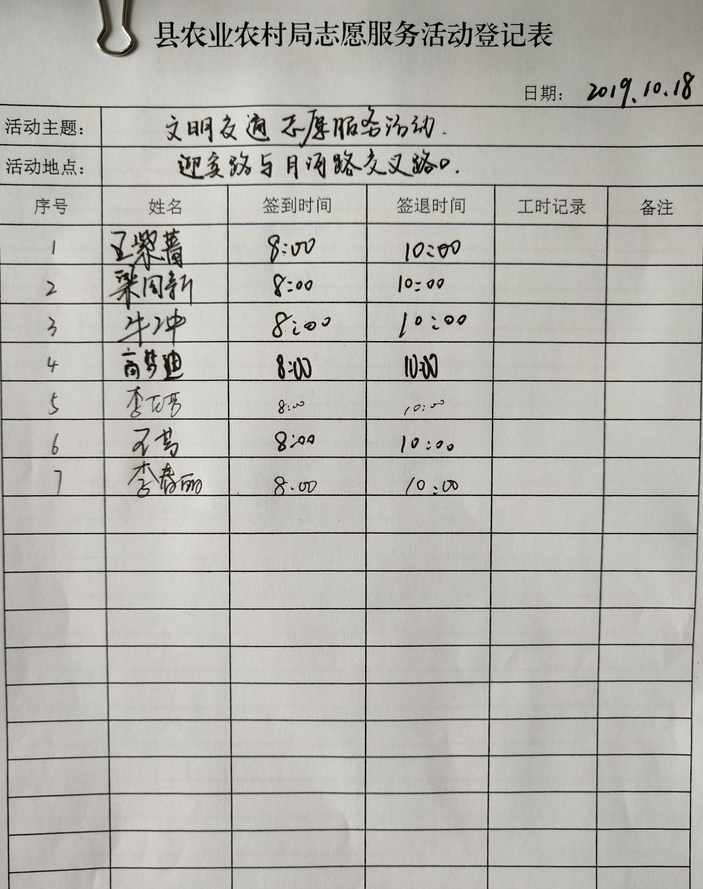 县农业农村局志愿服务活动登记表
日期： 2019.10.18
活动主题： 文明交通志愿服务活动.
活动地点： 迎宾路与月河路交叉路口.
序号 姓名 签到时间 签退时间 工时记录 备注
1 王紫蔷 8:00 10:00
2 梁国新 8:00 10:00
3 牛冲 8:00 10:00
4 商梦迪 8:00 10:00
5 李 8:00 10:00
6 王 8:00 10:00
7 李春丽 8:00 10:00